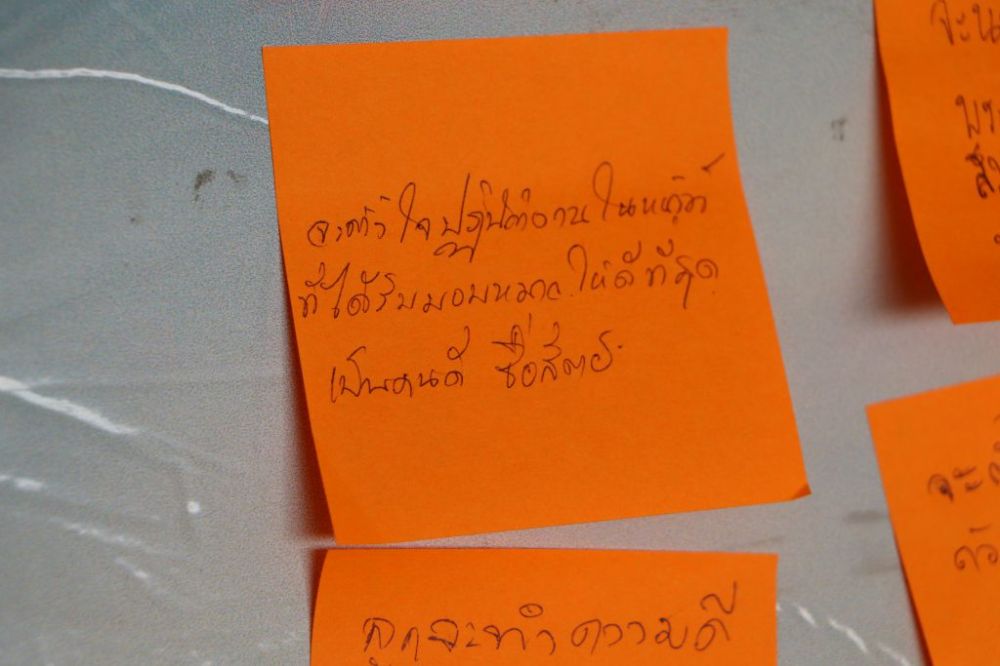 จะตั้งใจปฏิบัติงานในหน้าที่
ที่ได้รับมอบหมาย ให้ดีที่สุด
เป็นคนดี ซื่อสัตย์
ลูกจะทำความดี
จะน
พระ
จะ